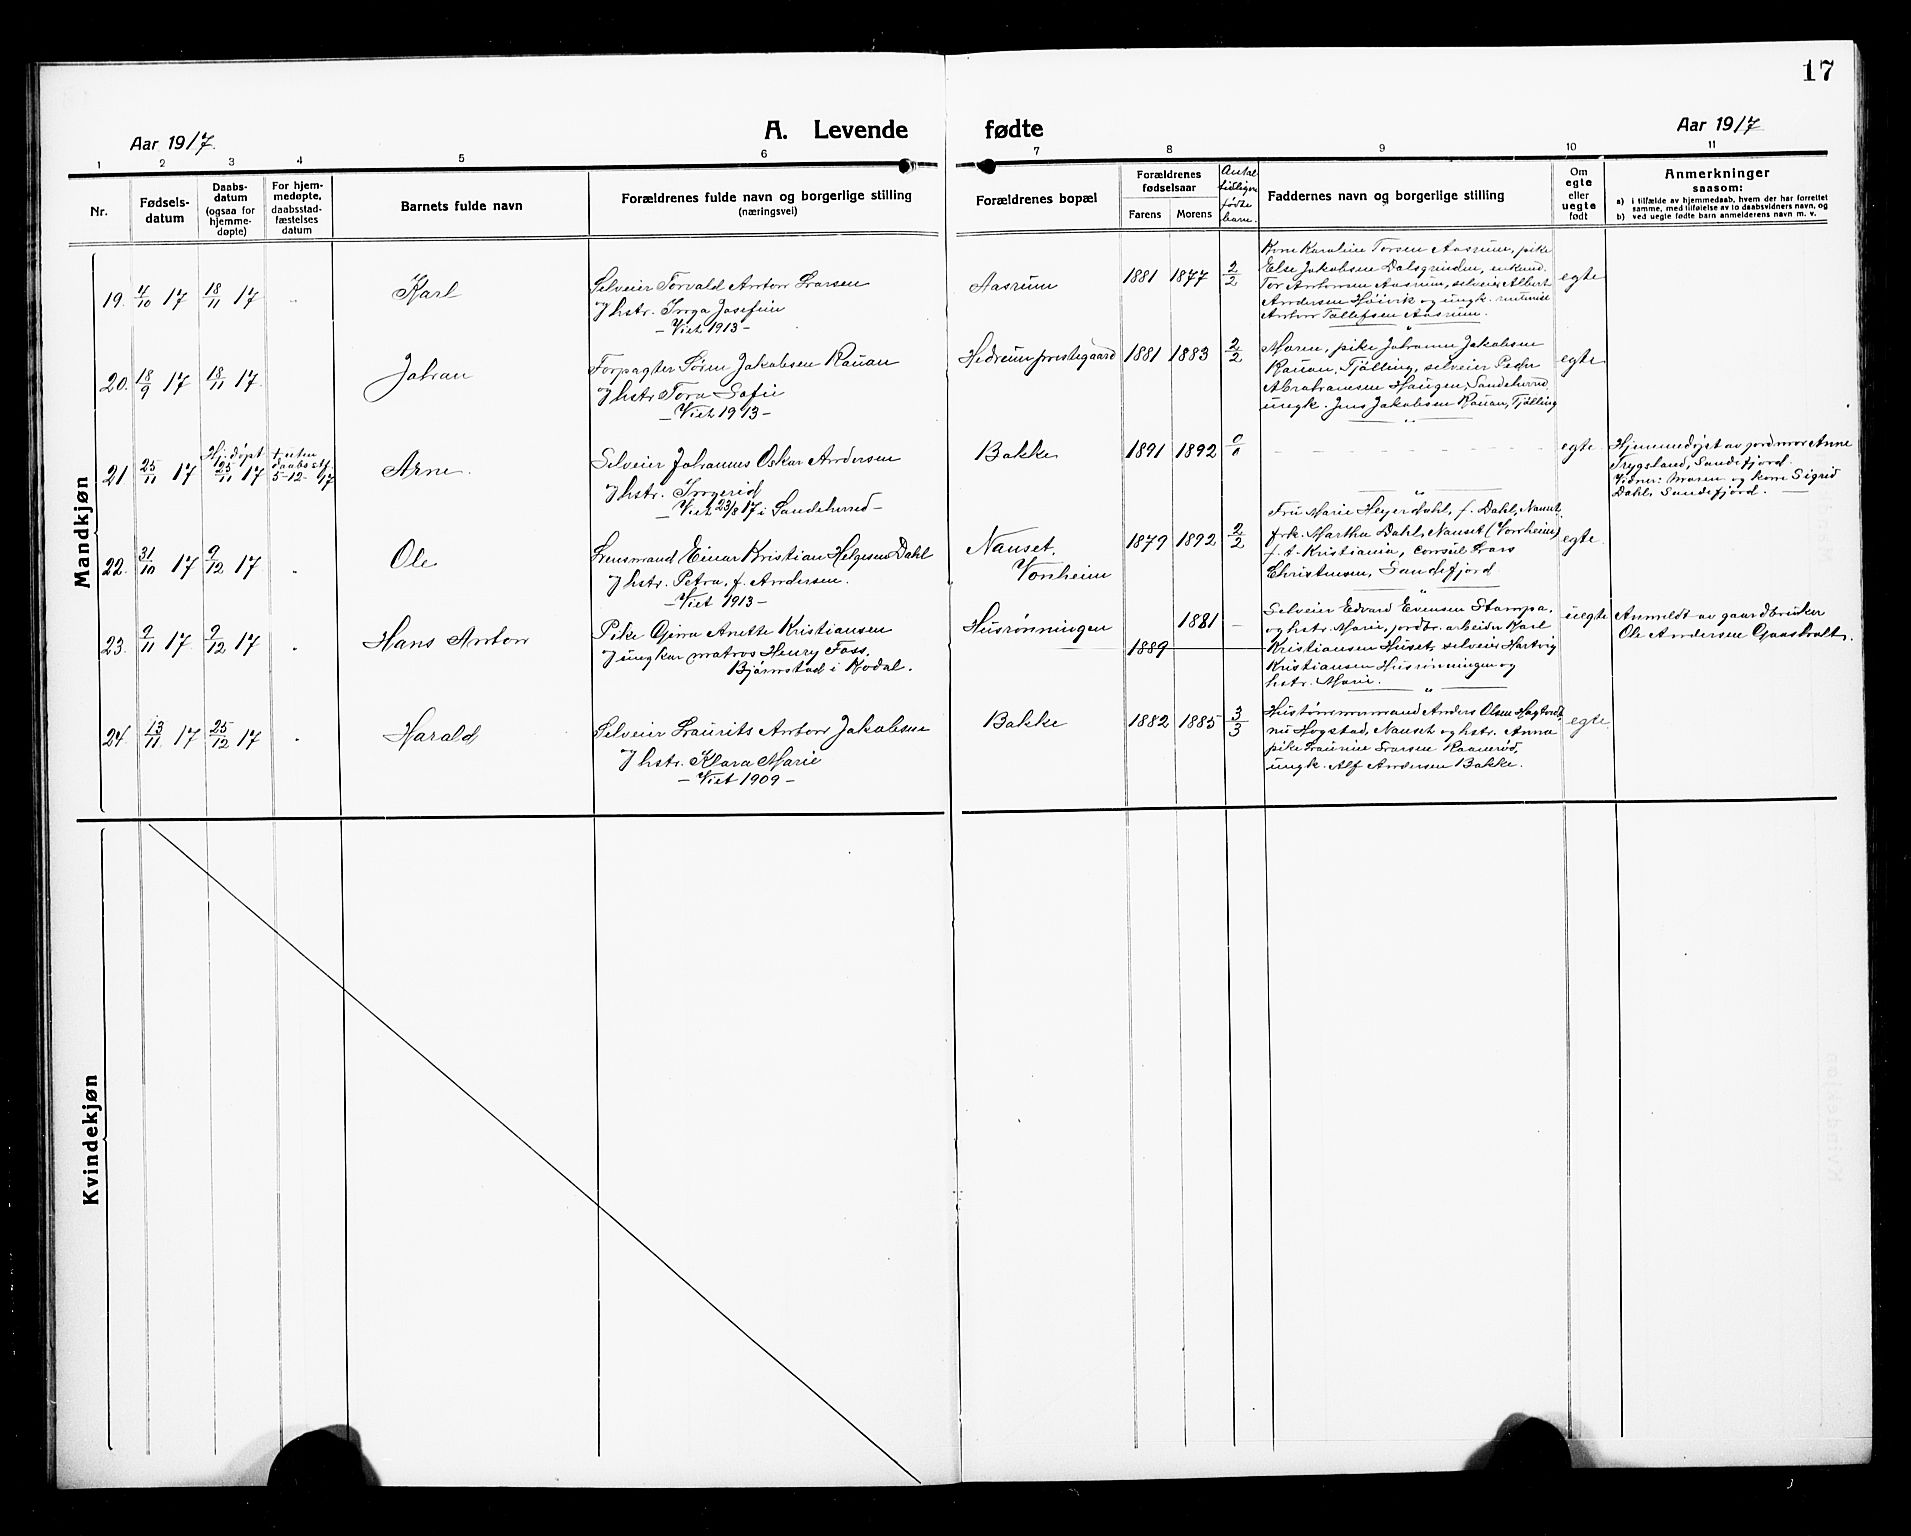 17
Aar 1917.
A. Levende fødte
Aar 1917
1 2 3 4 5 6 7 8 9 10 11
Nr.
Fødsels-
datum
Daabs-
datum
(ogsaa for
hjemme-
døpte)
For hjem-
medøpte,
daabsstad-
fæstelses
datum
Barnets fulde navn
Forældrenes fulde navn og borgerlige stilling
(næringsvei)
Forældrenes bopæl
Forældrenes
fødselsaar
Farens
Morens
Antal
tidligere
fødte
barn.
Faddernes navn og borgerlige stilling
Om
egte
eller
uegte
født
Anmerkninger
saasom:
a) i tilfælde av hjemmedaab, hvem der har forrettet
samme, med tilføielse av to daabsvidners navn, og
b) ved uegte fødte barn anmelderens navn m. v.
Mandkjøn
19. 4/10 17 18/11 17 Karl
Selveier Torvald Anton Larsen
& hstr. Inga Josefine
- Viet 1913 -
Aasrum 1881 1877 2/2
Kone Karoline Torsen Aasrum, pike
Else Jakobsen Dalsgrinden, enkemd.
Tor Antonsen Aasrum, selveier Albert
Andersen Høivik og ungk.
Anton Tollefsen Aasrum.
egte
20. 18/9 17 18/11 17 Johan
Forpagter Søren Jakobsen Rauan
og hstr. Tora Sofie
- Viet 1913 -
Hedrum prestegaard 1881 1883 2/2
Moren, pike Johanne Jakobsen
Rauan, Tjølling, selveier Peder
Abrahamsen Haugen, Sandeherred,
ungk. Jens Jakobsen Rauan, Tjølling
egte
21 25/11 17 Hj. døpt 25/11 17 † uten daabsstf. 5-12-17 Arne.
Selveier Johannes Oskar Andersen
& hstr. Ingerid
- Viet 23/8 17 i Sandeherred -
Bakke 1891 1892 0/0
egte
Hjemmedøpt av jordmor Anne
Trygsland, Sandefjord.
Vidner: Moren og kone Sigrid
Dahl, Sandefjord.
22. 31/10 17 9/12 17 Ole
Lensmand Einar Kristian Helgesen Dahl
& hstr. Petra, f. Andersen.
- Viet 1913 -
Nauset.
Vonheim
1879 1892 2/2
Fru Marie Heyerdahl, f. Dahl, Nauset,
frk. Martha Dahl, Nauset (Vonheim)
f. t. Kristiania, consul Lars
Christensen, Sandefjord
egte.
23. 9/11 17 9/12 17 Hans Anton
Pike Gjina Anette Kristiansen
& ungkar matros Henry Foss,
Bjørnstad i Kodal.
Husrønningen 1881 —
1889
Selveier Edvard Evensen Stampa,
og hstr. Marie, jordbr. arbeider Karl
Kristiansen Huset, selveier Hartvig
Kristiansen Husrønningen og
hstr. Marie.
uegte
Anmeldt av gaardbruker
Ole Andersen Gaasholt.
24. 13/11 17 25/12 17 Harald
Selveier Laurits Anton Jakobsen
& hstr. Klara Marie
- Viet 1909 -
Bakke 1882 1885 3/3
Hustømmermand Anders Olsen
Høgstad, Nauset og hstr. Anna
pike Laurine Larsen Raanerød,
ungk. Alf Andersen Bakke.
egte.
Kvindekjøn